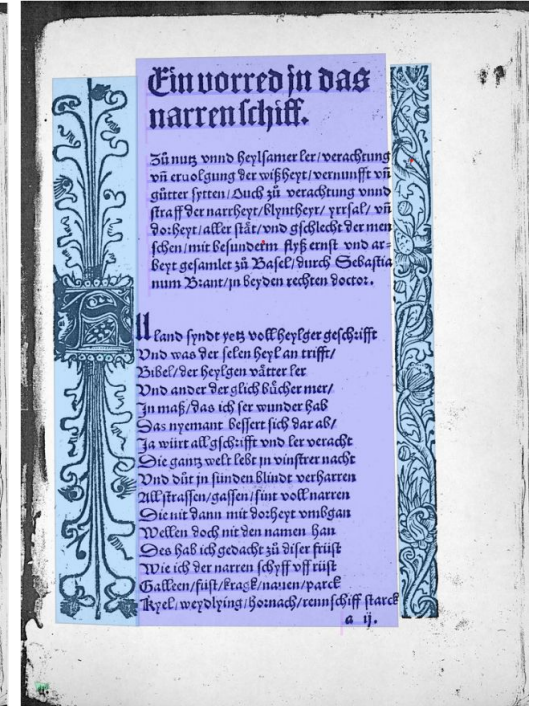 Ein vorred jn das
narren schiff.
Zů nutz vnnd heylsamer ler / verachtung
vñ eruolgung der wißheyt / vernunfft vñ
gůtter sytten / Ouch zů verachtung vnnd
straff der narrheyt / blyntheyt / yrrsal / vñ
dorheyt / aller stät / vnd gschlecht der men
schen / mit besunderm flyß ernst vnd ar-
beyt gesamlet zů Basel / durch Sebastia
num Brant / jn beyden rechten doctor.
All land syndt yetz voll heylger geschrifft
Vnd was der selen heyl an trifft /
Bibel / der heylgen vätter ler
Vnd ander der glich bůcher mer /
Jn maß / das ich ser wunder hab
Das nyemant bessert sich dar ab /
Ja würt all gschrifft vnd ler veracht
Die gantz welt lebt jn vinstrer nacht
Vnd důt jn sünden blindt verharren
All strassen / gassen / sint voll narren
Die nit dann mit dorheyt vmbgan
Wellen doch nit den namen han
Des hab ich gedacht zů diser früst
Wie ich der narren schyff vff rüst
Galleen / füst / kragk / nauen / parck
Kyel / weydlying / hornach / rennschiff starck
a ij.